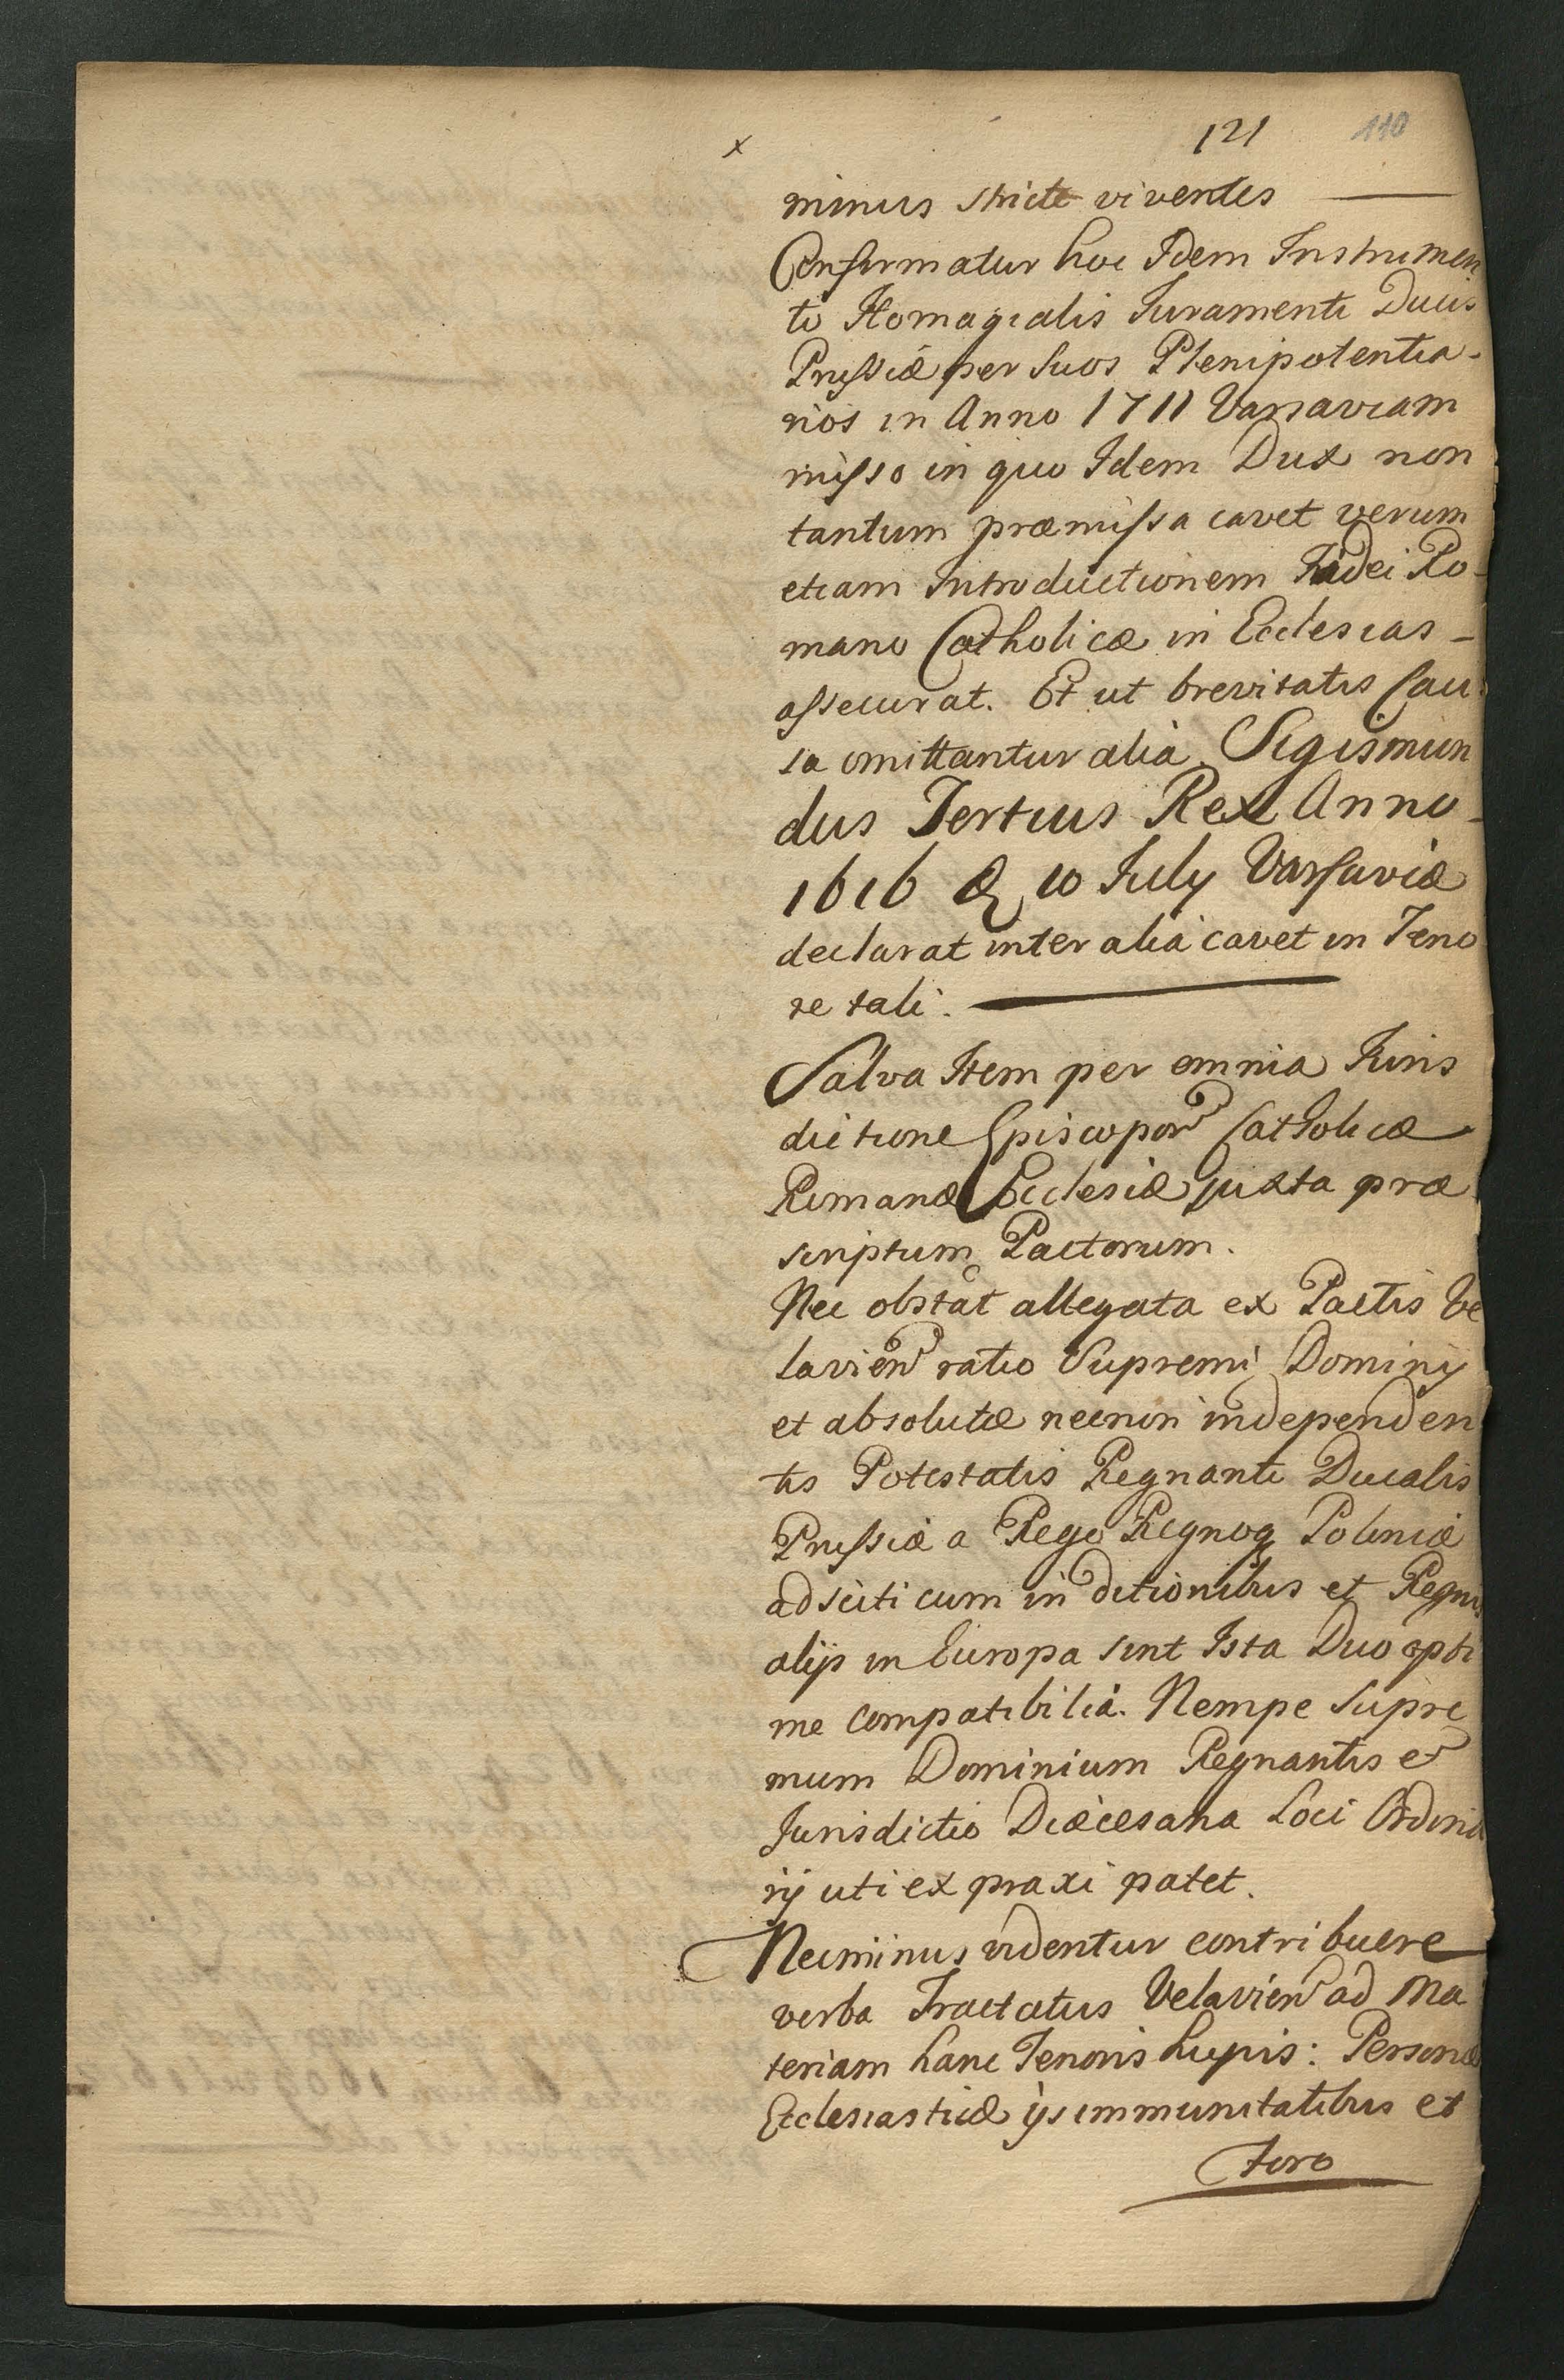 x
121 110
minus stricte viventes
Confirmatur hoc Idem Instrumen
to Homagialis Iuramenti Ducis
Prussiæ per suos Plenipotentia-
rios in Anno 1711 Varsaviam
misso in quo Idem Dux non
tantum præmissa cavet verum
etiam Introductionem Fidei Ro-
mano Catholicæ in Ecclesias -
assecurat. Et ut brevitatis Cau
sa omittantur alia Sigismun
dus Tertius Rex Anno -
1616 10 July Varsaviæ
declarat inter alia cavet in Teno
re tali.
Salva Item per omnia Iuris
dictione Episcopor Catholicæ
Romanæ Ecclesiæ juxta præ
scriptum Pactorum.
Nec obstat allegata ex Pactis Ve
lavien ratio Supremi Dominij
et absolutæ necnon independen
tis Potestatis Regnanti Ducalis
Prussiæ a Rege Regnoq Poloniæ
adsciti cum in ditionibus et Regnis
alijs in Europa sint Ista Duo opti
me compatibilia. Nempe Supre
mum Dominium Regnantis et
Jurisdictio Diæcesana Loci Ordina
rij uti ex praxi patet.
Necminus videntur contribuere
verba Tractatus Velavien ad Ma
teriam hanc Tenoris hujus: Personæ
Ecclesiasticæ ijs immunitatibus et
foro